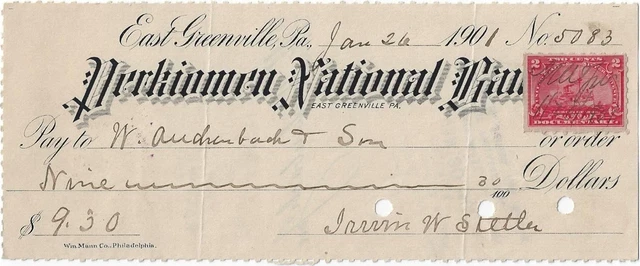 East Greenville, Pa., Jan 26 1901 No. 5083
Perkiomen National Ban
EAST GREENVILLE PA.
TWO CENTS
2 2
DOCUMENTARY
Pay to W. Auchenbach & Son or order
Nine 30/100 Dollars
$ 9.30 Irwin W Stetler
Wm. Mann Co., Philadelphia.